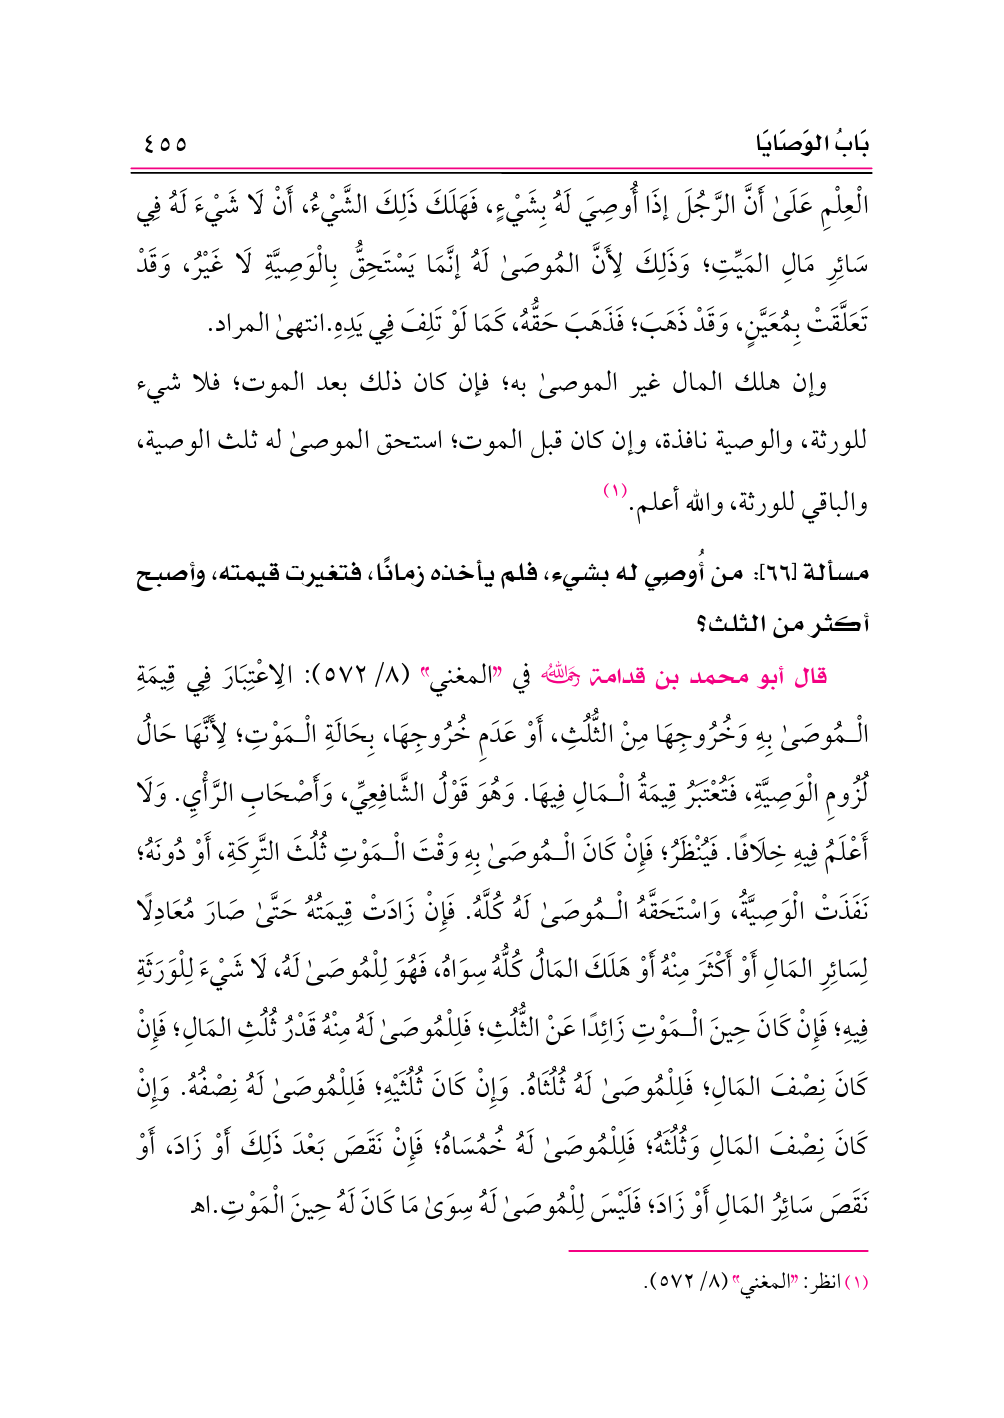 بَابُ الوَصَايَا ٤٥٥
الْعِلْمِ عَلَىٰ أَنَّ الرَّجُلَ إذَا أُوصِيَ لَهُ بِشَيْءٍ، فَهَلَكَ ذَلِكَ الشَّيْءُ، أَنْ لَا شَيْءَ لَهُ فِي
سَائِرِ مَالِ المَيِّتِ؛ وَذَلِكَ لِأَنَّ المُوصَىٰ لَهُ إنَّمَا يَسْتَحِقُّ بِالْوَصِيَّةِ لَا غَيْرُ، وَقَدْ
تَعَلَّقَتْ بِمُعَيَّنٍ، وَقَدْ ذَهَبَ؛ فَذَهَبَ حَقُّهُ، كَمَا لَوْ تَلِفَ فِي يَدِهِ.انتهىٰ المراد.
وإن هلك المال غير الموصىٰ به؛ فإن كان ذلك بعد الموت؛ فلا شيء
للورثة، والوصية نافذة، وإن كان قبل الموت؛ استحق الموصىٰ له ثلث الوصية،
والباقي للورثة، والله أعلم.(١)
مسألة [٦٦]: من أُوصِي له بشيء، فلم يأخذه زمانًا، فتغيرت قيمته، وأصبح
أكثر من الثلث؟
قال أبو محمد بن قدامة رحمه الله في "المغني" (٨/ ٥٧٢): الِاعْتِبَارَ فِي قِيمَةِ
الْـمُوصَىٰ بِهِ وَخُرُوجِهَا مِنْ الثُّلُثِ، أَوْ عَدَمِ خُرُوجِهَا، بِحَالَةِ الْـمَوْتِ؛ لِأَنَّهَا حَالُ
لُزُومِ الْوَصِيَّةِ، فَتُعْتَبَرُ قِيمَةُ الْـمَالِ فِيهَا. وَهُوَ قَوْلُ الشَّافِعِيِّ، وَأَصْحَابِ الرَّأْيِ. وَلَا
أَعْلَمُ فِيهِ خِلَافًا. فَيُنْظَرُ؛ فَإِنْ كَانَ الْـمُوصَىٰ بِهِ وَقْتَ الْـمَوْتِ ثُلُثَ التَّرِكَةِ، أَوْ دُونَهُ؛
نَفَذَتْ الْوَصِيَّةُ، وَاسْتَحَقَّهُ الْـمُوصَىٰ لَهُ كُلَّهُ. فَإِنْ زَادَتْ قِيمَتُهُ حَتَّىٰ صَارَ مُعَادِلًا
لِسَائِرِ المَالِ أَوْ أَكْثَرَ مِنْهُ أَوْ هَلَكَ المَالُ كُلُّهُ سِوَاهُ، فَهُوَ لِلْمُوصَىٰ لَهُ، لَا شَيْءَ لِلْوَرَثَةِ
فِيهِ؛ فَإِنْ كَانَ حِينَ الْـمَوْتِ زَائِدًا عَنْ الثُّلُثِ؛ فَلِلْمُوصَىٰ لَهُ مِنْهُ قَدْرُ ثُلُثِ المَالِ؛ فَإِنْ
كَانَ نِصْفَ المَالِ؛ فَلِلْمُوصَىٰ لَهُ ثُلُثَاهُ. وَإِنْ كَانَ ثُلُثَيْهِ؛ فَلِلْمُوصَىٰ لَهُ نِصْفُهُ. وَإِنْ
كَانَ نِصْفَ المَالِ وَثُلُثَهُ؛ فَلِلْمُوصَىٰ لَهُ خُمُسَاهُ؛ فَإِنْ نَقَصَ بَعْدَ ذَلِكَ أَوْ زَادَ، أَوْ
نَقَصَ سَائِرُ المَالِ أَوْ زَادَ؛ فَلَيْسَ لِلْمُوصَىٰ لَهُ سِوَىٰ مَا كَانَ لَهُ حِينَ الْمَوْتِ.اﻫ
(١) انظر: "المغني" (٨/ ٥٧٢).